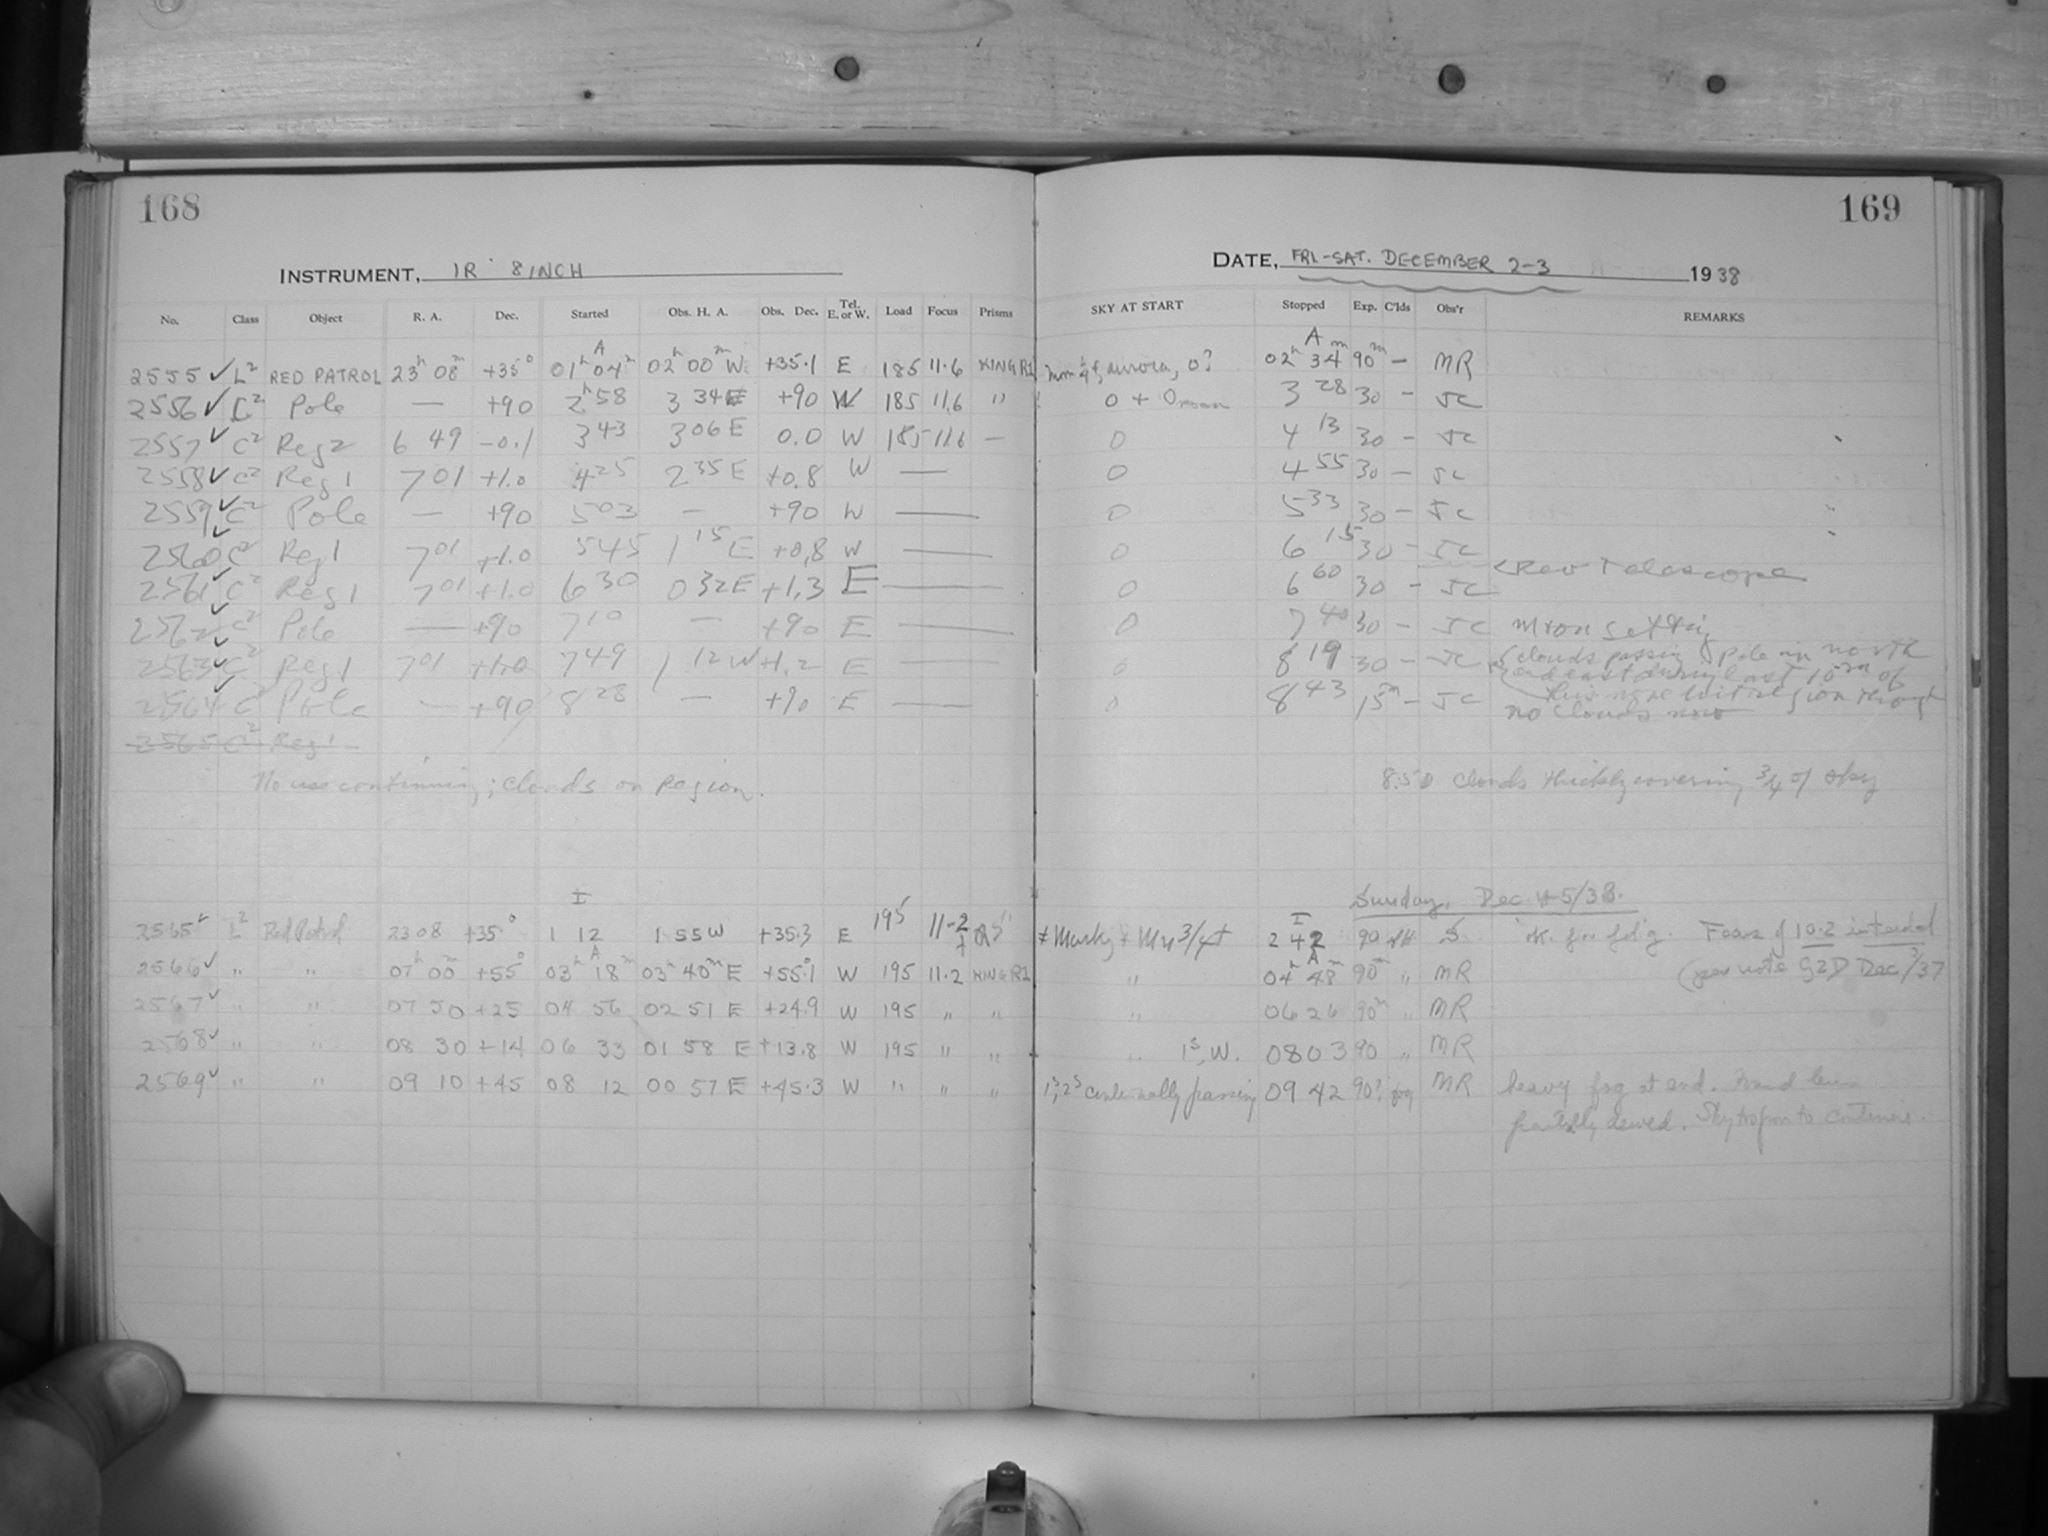 168
INSTRUMENT, IR 8 INCH
No. Class Object R. A. Dec. Started Obs. H. A. Obs. Dec. Tel. E. or W. Load Focus Prisms
2555 ✓ L² RED PATROL 23ʰ 08ᵐ +35° 01ʰ 04ᵐ A 02ʰ 00ᵐ W +35.1 E 185 11.6 KING R1
2556 ✓ C² Pole — +90 2ʰ 58 3 34 E +90 W 185 11.6 "
2557 ✓ C² Reg 2 6 49 -0.1 3 43 3 06 E 0.0 W 185 11.6 —
2558 ✓ C² Reg 1 7 01 +1.0 4 25 2 35 E +0.8 W —
2559 ✓ C² Pole — +90 5 03 — +90 W —
2560 ✓ C² Reg 1 7 01 +1.0 5 45 1 15 E +0.8 W —
2561 ✓ C² Reg 1 7 01 +1.0 6 30 0 32 E +1.3 E —
2562 ✓ C² Pole — +90 7 10 — +90 E —
2563 ✓ C² Reg 1 7 01 +1.0 7 49 1 12 W +1.2 E
2564 ✓ C² Pole — +90 8 28 — +90 E —
2565 C² Reg 1
No use continuing; clouds on region.
I
2565 ✓ L² Red Patrol 23 08 +35° 1 12 1 55 W +35.3 E 195 11.2
2566 ✓ " " 07ʰ 00ᵐ +55° 03ʰ 18ᵐ A 03ʰ 40ᵐ E +55.1 W 195 11.2 KING R1
2567 ✓ " " 07 50 +25 04 56 02 51 E +24.9 W 195 " "
2568 ✓ " " 08 30 +14 06 33 01 58 E +13.8 W 195 " "
2569 ✓ " " 09 10 +45 08 12 00 57 E +45.3 W " " "
169
DATE, FRI-SAT. DECEMBER 2-3 1938
SKY AT START Stopped Exp. C'lds Obs'r REMARKS
aurora, 0? 02ʰ 34ᵐ A 90ᵐ — MR
0 + 0 moon 3 28 30 — JC
0 4 13 30 — JC
0 4 55 30 — JC
0 5 33 30 — JC
0 6 15 30 — JC
< Rev Telescope
0 6 60 30 — JC
0 7 40 30 — JC Moon setting
0 8 19 30 — JC clouds passing Pole in north
and east during last 10ᵐ of
0 8 43 15ᵐ — JC
no clouds now
8.50 clouds thickly covering 3/4 of sky
Sunday, Dec 4-5/38.
I
2 42 90 Fears of 10.2 intended
" 04ʰ 48ᵐ A 90ᵐ " MR (per note Dec 3/37
" 06 26 90ᵐ " MR
" 1ˢ, W. 08 03 90 " MR
passing 09 42 90? fog MR heavy fog at end.
partially dewed.